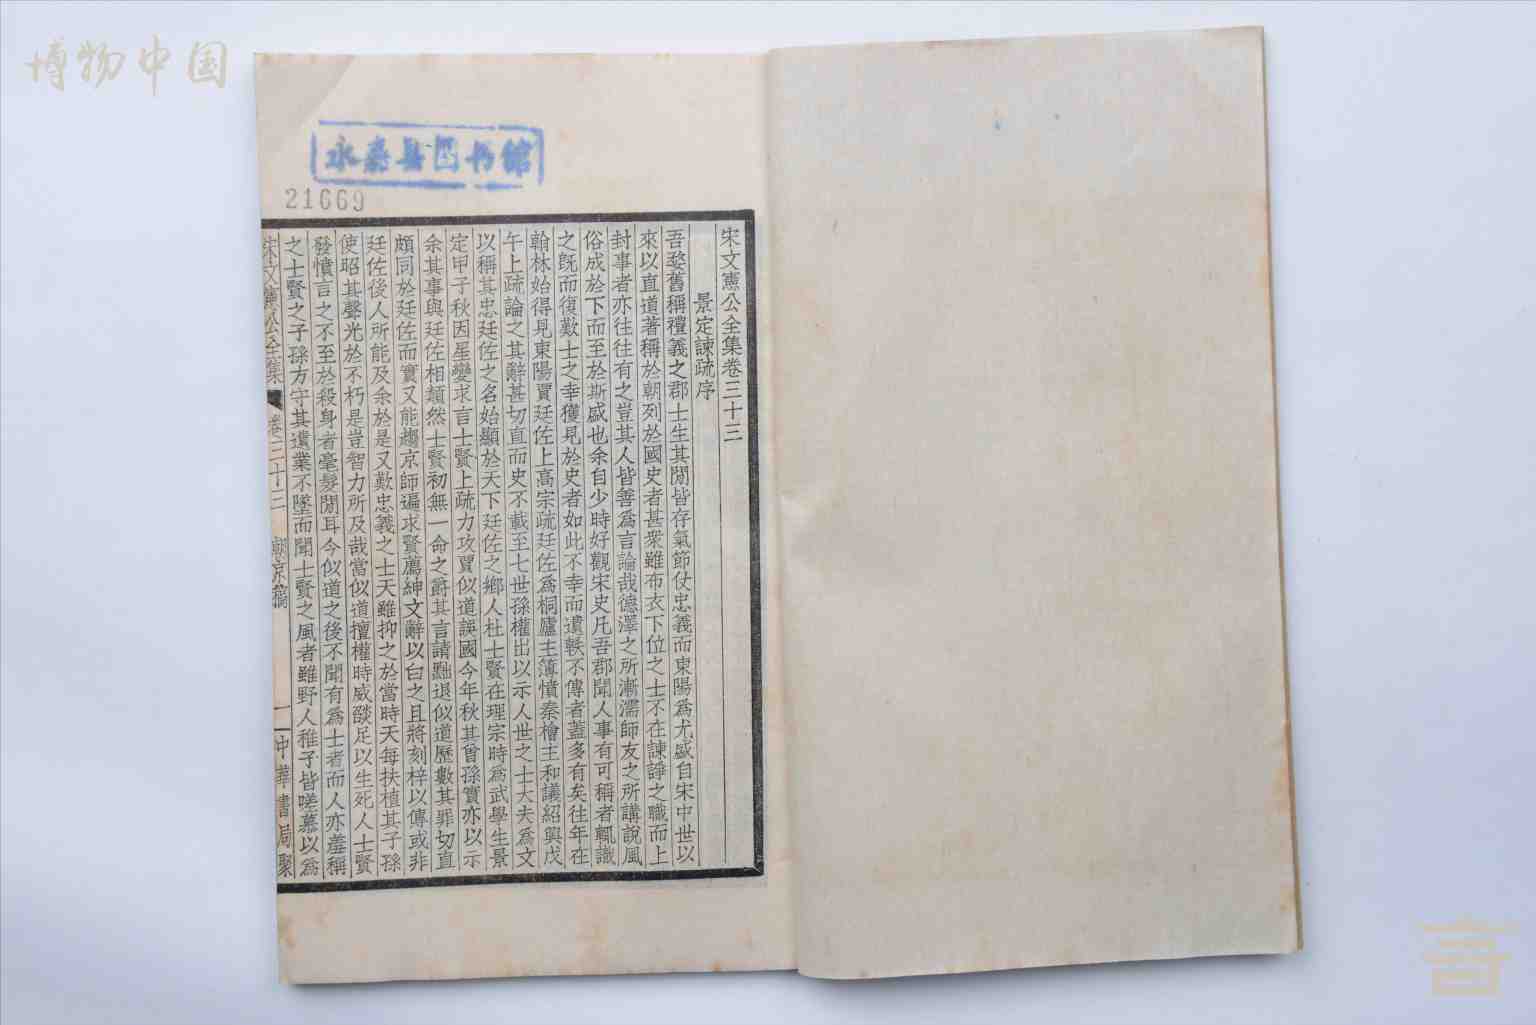 博物中国
永泰县图书馆
21669
宋文憲公全集卷三十三
景定諫疏序
吾婺舊稱禮義之郡士生其閒皆存氣節仗忠義而東陽為尤盛自宋中世以
來以直道著稱於朝列於國史者甚衆雖布衣下位之士不在諫諍之職而上
封事者亦往往有之豈其人皆善為言論哉德澤之所漸濡師友之所講說風
俗成於下而至於斯盛也余自少時好觀宋史凡吾郡聞人事有可稱者輒識
之旣而復歎士之幸獲見於史者如此不幸而遺軼不傳者蓋多有矣往年在
翰林始得見東陽賈廷佐上高宗疏廷佐為桐廬主簿憤秦檜主和議紹興戊
午上疏論之其辭甚切直而史不載至七世孫權出以示人世之士大夫為文
以稱其忠廷佐之名始顯於天下廷佐之鄉人杜士賢在理宗時為武學生景
定甲子秋因星變求言士賢上疏力攻賈似道誤國今年秋其曾孫實亦以示
余其事與廷佐相類然士賢初無一命之爵其言請黜退似道歷數其罪切直
頗同於廷佐而實又能趨京師遍求賢薦紳文辭以白之且將刻梓以傳或非
廷佐後人所能及余於是又歎忠義之士天雖抑之於當時天每扶植其子孫
使昭其聲光於不朽是豈智力所及哉當似道擅權時威燄足以生死人士賢
發憤言之不至於殺身者毫髮閒耳今似道之後不聞有為士者而人亦羞稱
之士賢之子孫方守其遺業不墜而聞士賢之風者雖野人稚子皆嗟慕以為
宋文憲公全集 卷三十三 朝京稿 一 中華書局聚